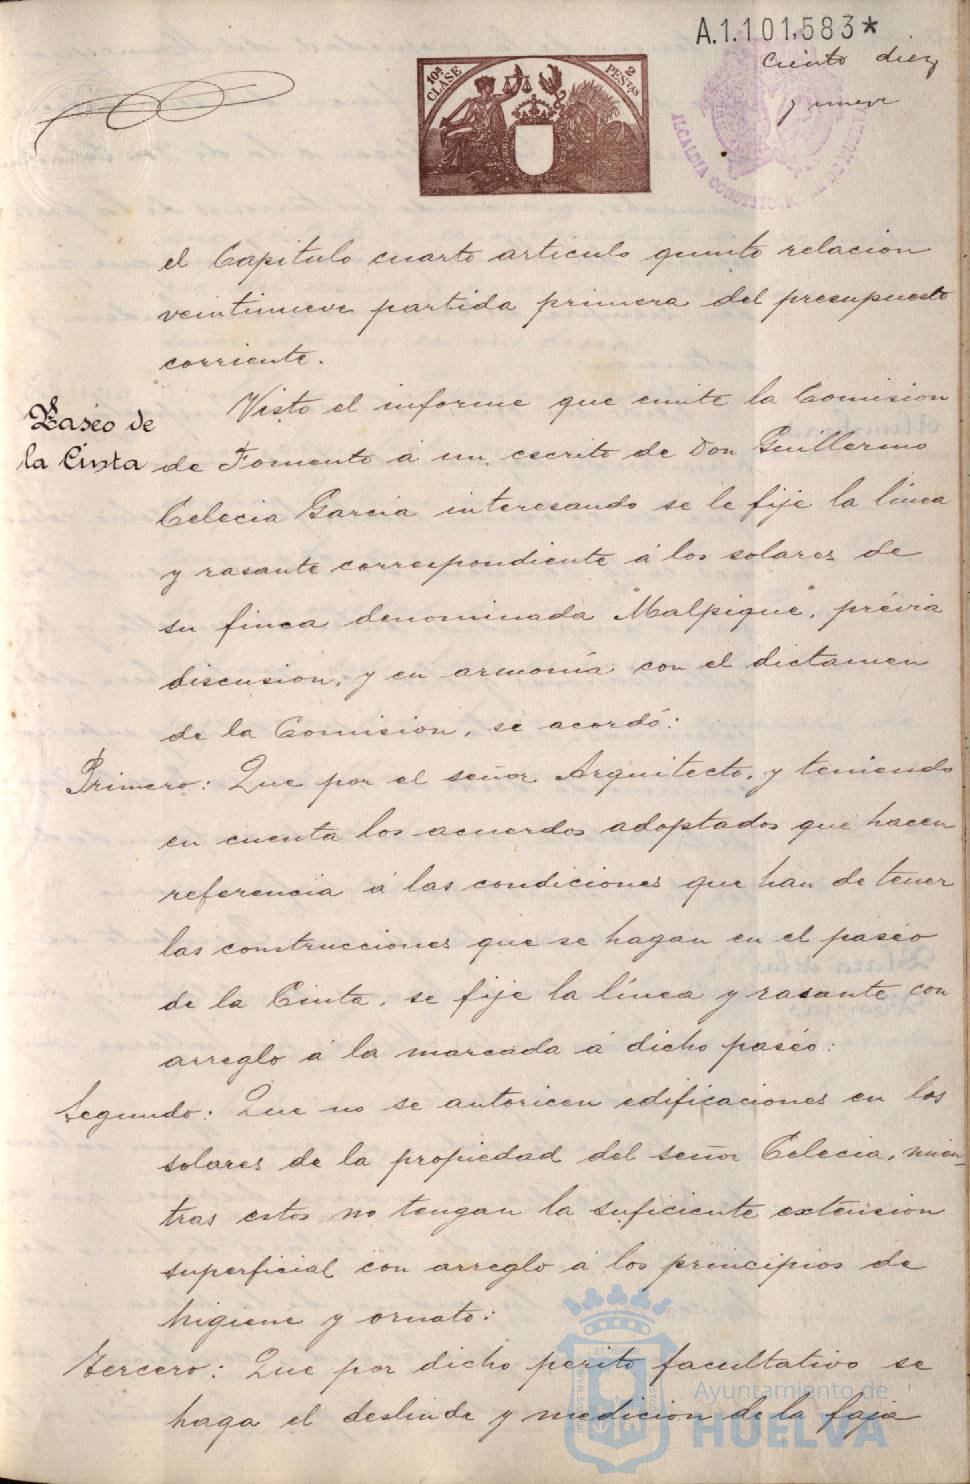 A.1.101.583*
Ciento diez
y nueve
10ª CLASE
2 PESTAS
ALCALDIA CONSTITUCIONAL DE HUELVA
el Capitulo cuarto articulo quinto relacion
veintinueve partida primera del presupuesto
corriente.
Paseo de
la Cinta
Visto el informe que emite la Comision
de Fomento á un escrito de Don Guillermo
Celecia Garcia interesando se le fije la línea
y rasante correspondiente á los solares de
su finca denominada "Malpique", prévia
discusion, y en armonía con el dictamen
de la Comision, se acordó:
Primero: Que por el señor Arquitecto, y teniendo
en cuenta los acuerdos adoptados que hacen
referencia á las condiciones que han de tener
las construcciones que se hagan en el paseo
de la Cinta, se fije la línea y rasante con
arreglo á la marcada á dicho paséo:
Segundo: Que no se autoricen edificaciones en los
solares de la propiedad del señor Celecia, mien-
tras estos no tengan la suficiente extension
superficial con arreglo á los principios de
higiene y ornato:
Tercero: Que por dicho perito facultativo se
haga el deslinde y medicion de la faja
Ayuntamiento de
HUELVA